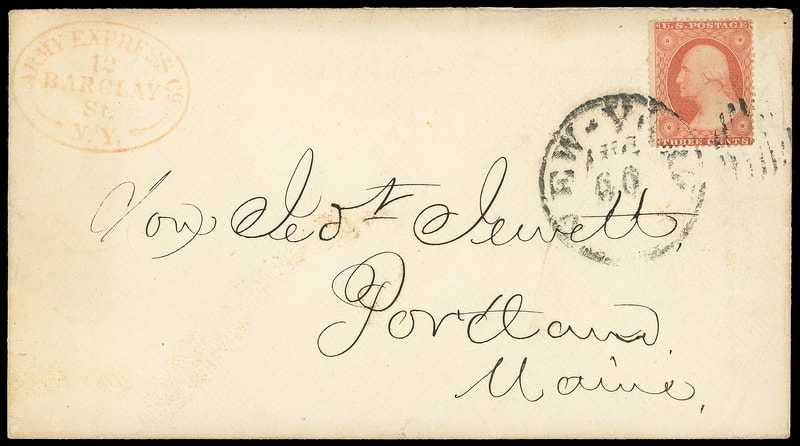 ARMY EXPRESS Co
12
BARCLAY
St.
N.Y.
U.S. POSTAGE
THREE CENTS
NEW-YO
60
Hon Geo. F. Jewett,
Portland
Maine,